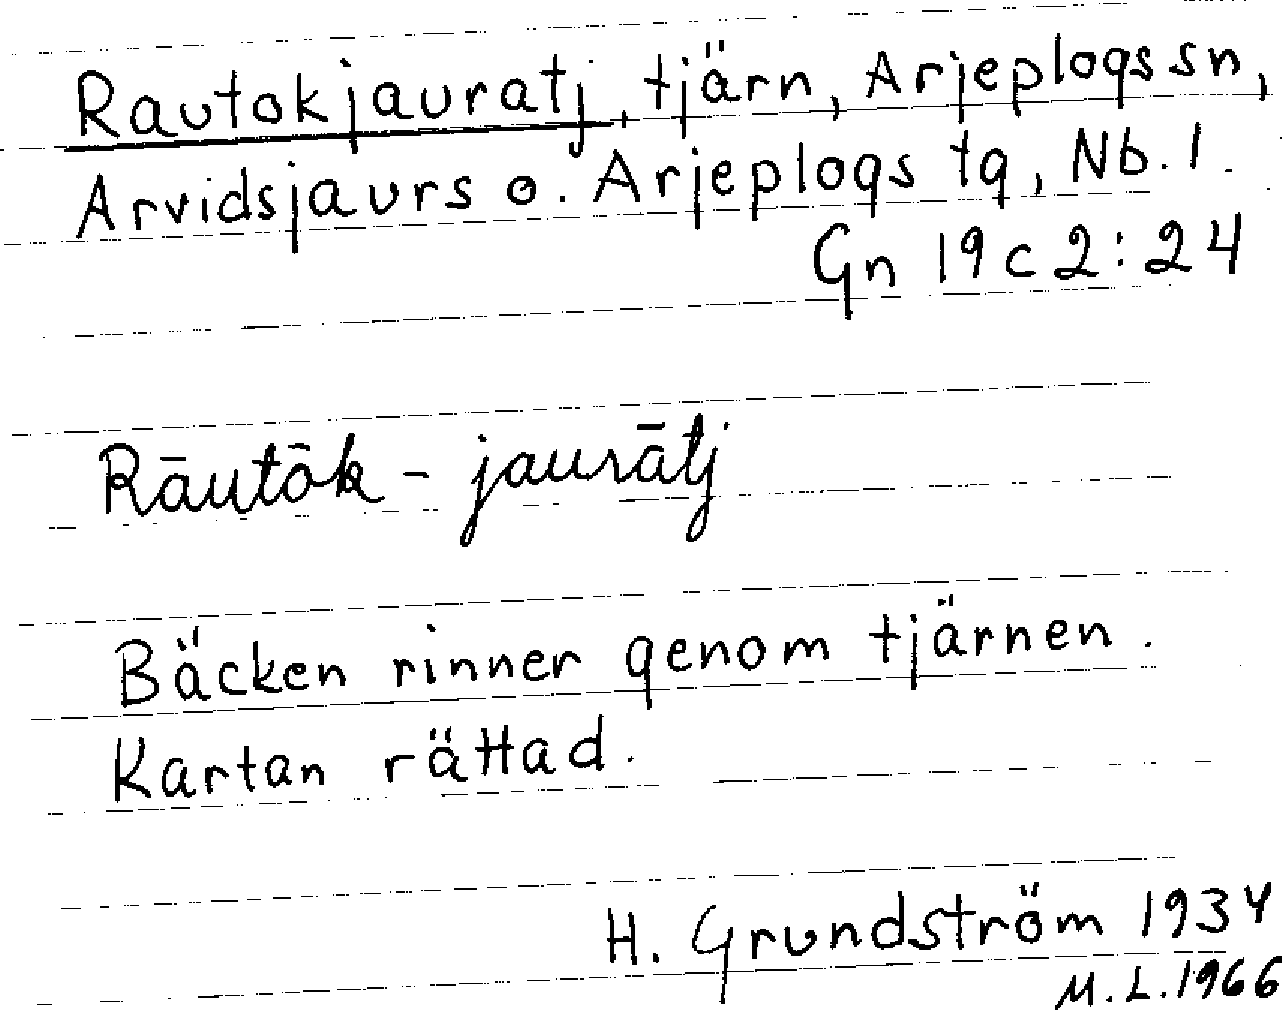 Rautokjauratj, tjärn, Arjeplogs sn,
Arvidsjaurs o. Arjeplogs tg, Nb. l.
Gn 19 c 2:24
Rāutōk - jaurātj
Bäcken rinner genom tjärnen.
Kartan rättad.
H. Grundström 1934
M.L. 1966